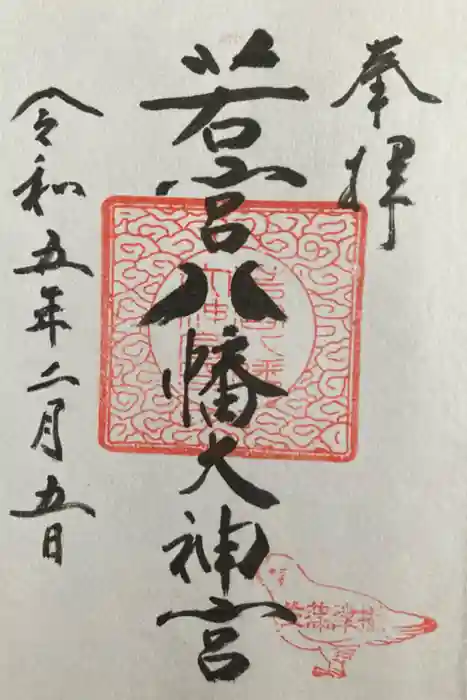 奉拝
若宮八幡大神宮
令和五年二月五日